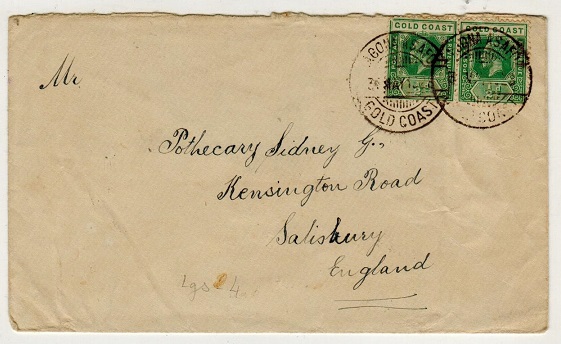 GOLD COAST GOLD COAST
AGONA
GOLD COAST
Mr.
Pothecary Sidney G.,
Kensington Road
Salisbury
England